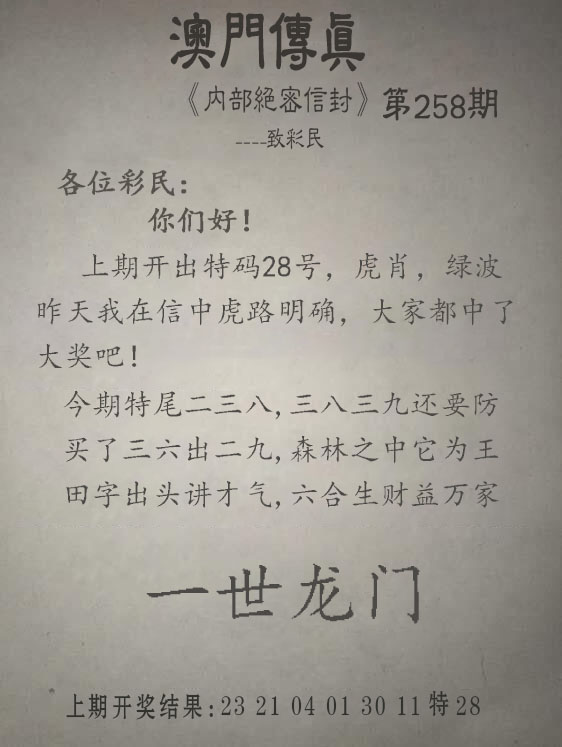 澳門傳眞
《内部絕密信封》第258期
----致彩民
各位彩民:
你们好!
上期开出特码28号，虎肖，绿波
昨天我在信中虎路明确，大家都中了
大奖吧!
今期特尾二三八,三八三九还要防
买了三六出二九,森林之中它为王
田字出头讲才气,六合生财益万家
一世龙门
上期开奖结果:23 21 04 01 30 11 特28